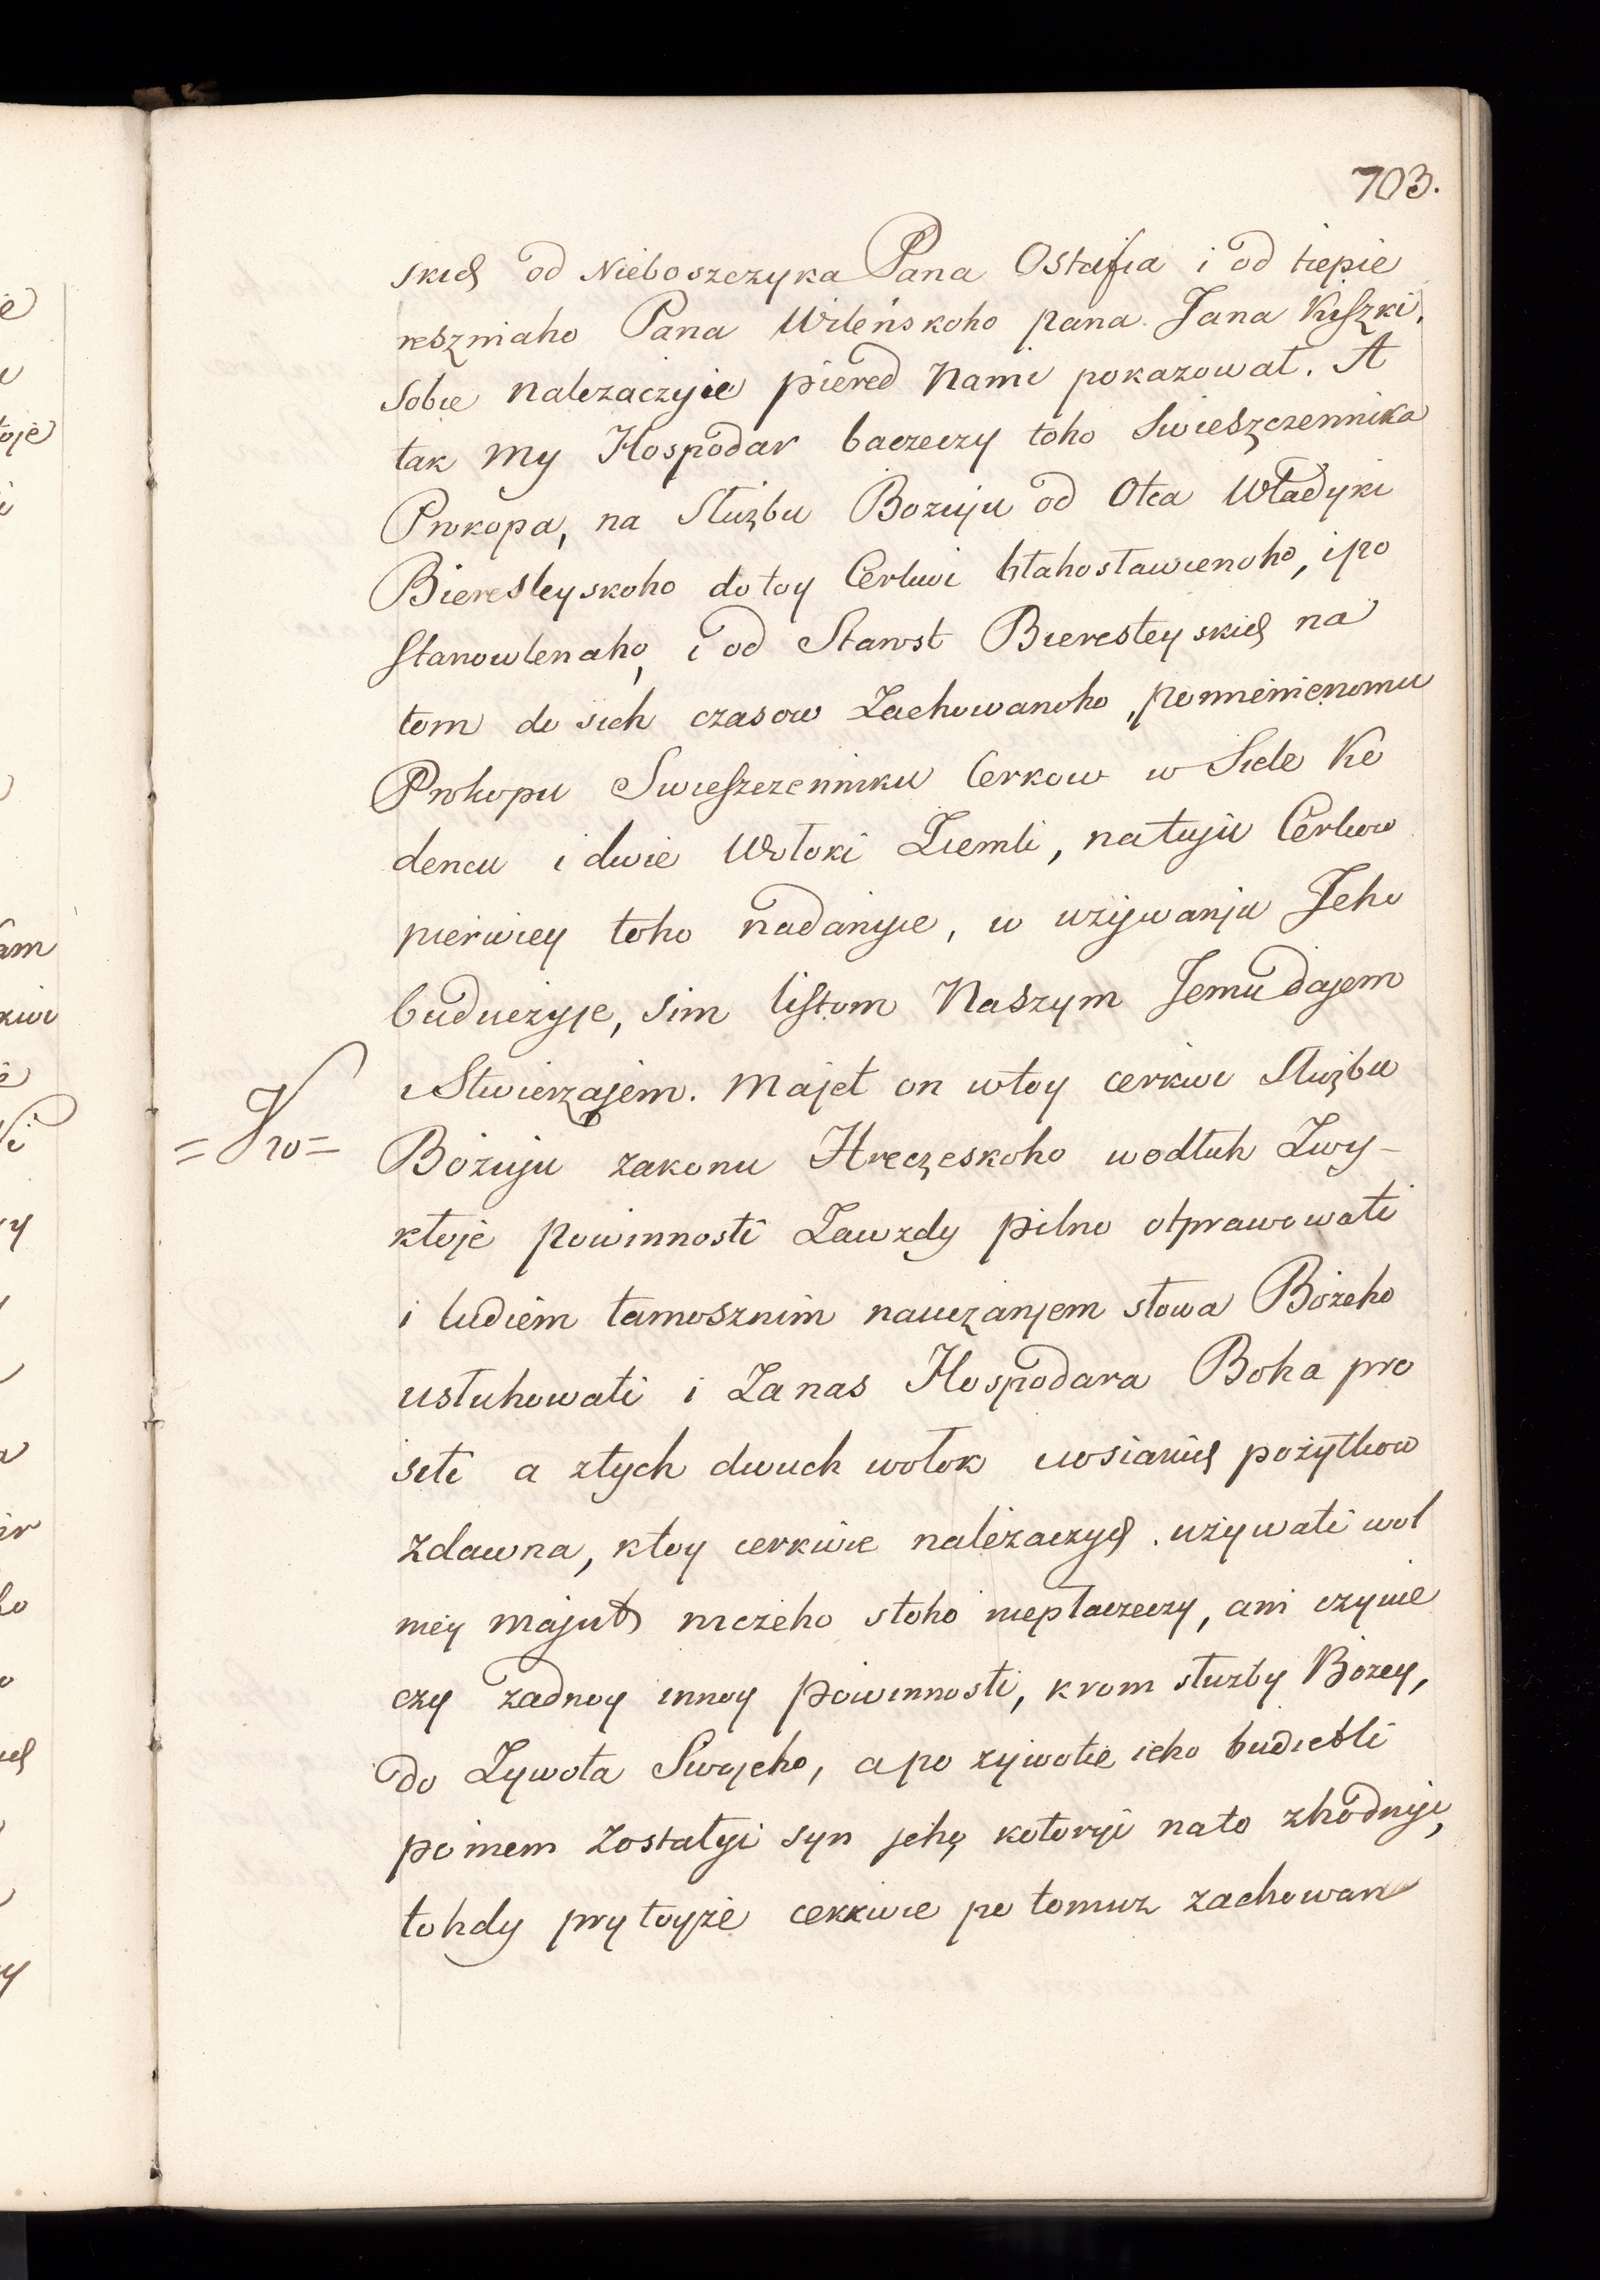 703.
skich od Nieboszczyka Pana Ostafia i od tiepie
reszniaho Pana Wileńskoho pana Jana Kiszki,
sobie nalezaczyie piered Nami pokazował. A
tak My Hospodar baczeczy toho Swieszczennika
Prokopa, na Służbu Bozuju od Otca Władyki
Bieresteyskoho do toy Cerkwi błahosławienoho, i po
stanowlenaho, i od Starost Bieresteyskich na
tom do sich czasow Zachowanoho, pomienienomu
Prokopu Swieszczenniku Cerkow w Siele Ko
dencu i dwie Wołoki Ziemli, na tuju Cerkow
pierwiey toho nadanyie, w uzywanju Jeho
buduczyje, sim listom Naszym Jemu dajem
i Stwierzajem. Majet on w toy cerkwi Służbu
=Kro= Bożuju zakonu Hreczeskoho wodłuh Zwy-
kłoje powinnosti Zawzdy pilno otprawowati
i ludiem tamosznim nauczanjem słowa Bożeho
usłuhowati i Za nas Hospodara Boha pro
siti a z tych dwuch wołok i wsiakich pożytkow
zdawna, k toy cerkwie należaczych używati wol
niey majut niczeho s toho niepłaczeczy, ani czynie
czy żadnoy innoy powinnosti, krom służby Bozey,
do Zywota Swojeho, a po zywotie ieho budietli
po niem zostałyi syn jeho, kotoryi na to zhodnyi,
tohdy pry toyże cerkwie po tomuz zachowan